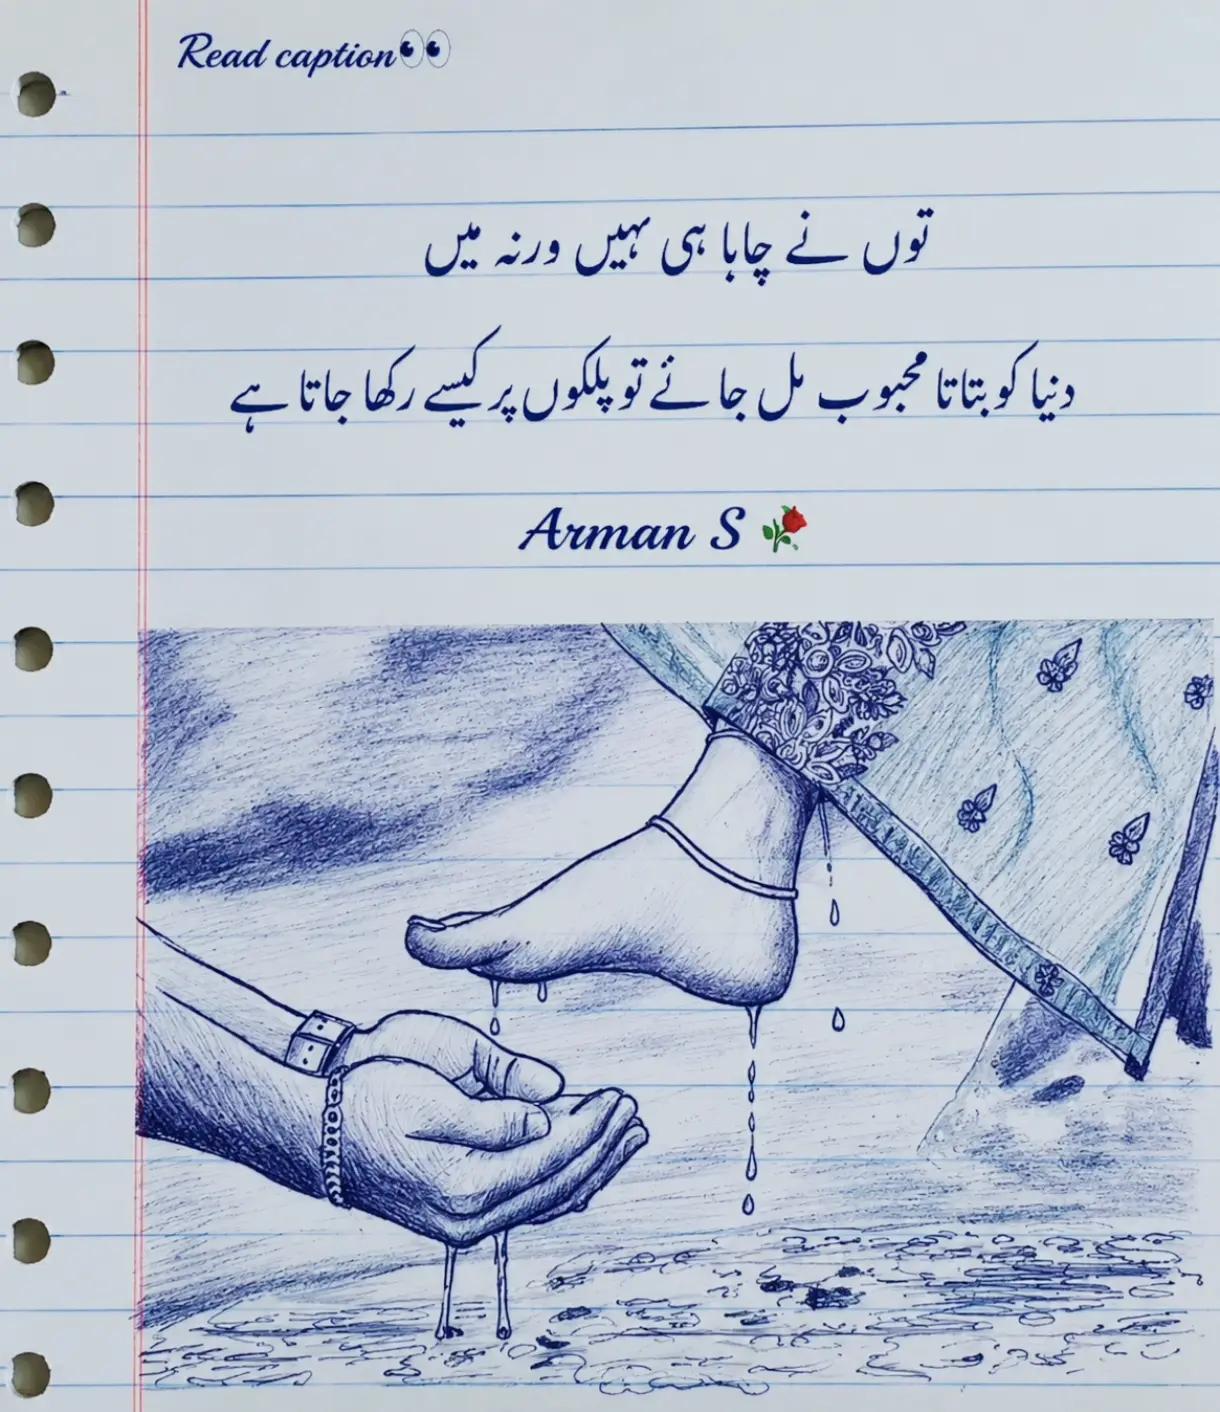 Read caption👀
توں نے چاہا ہی نہیں ورنہ میں
دنیا کو بتاتا محبوب مل جائے تو پلکوں پر کیسے رکھا جاتا ہے
Arman S 🌹